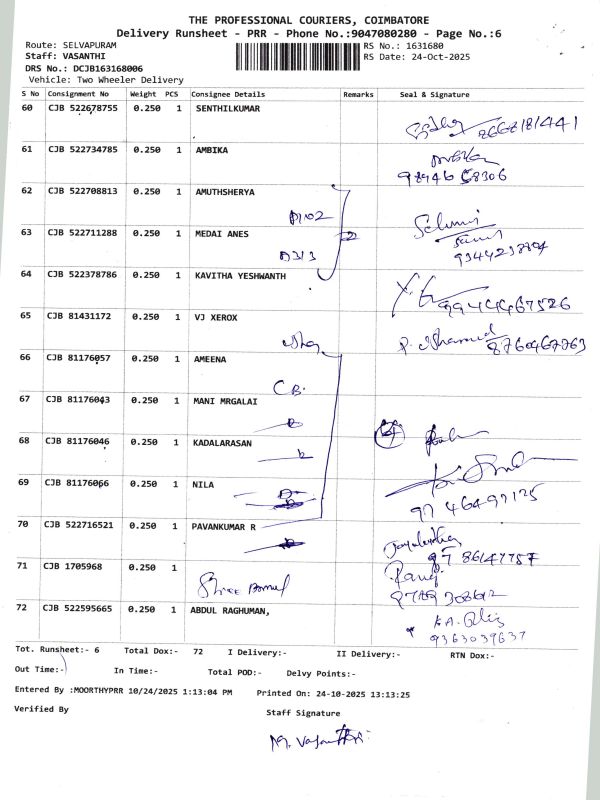 THE PROFESSIONAL COURIERS, COIMBATORE
Delivery Runsheet - PRR - Phone No.:9047080280 - Page No.:6
Route: SELVAPURAM RS No.: 1631680
Staff: VASANTHI RS Date: 24-Oct-2025
DRS No.: DCJB163168006
Vehicle: Two Wheeler Delivery
S No Consignment No Weight PCS Consignee Details Remarks Seal & Signature
60 CJB 522678755 0.250 1 SENTHILKUMAR
8668181441
61 CJB 522734785 0.250 1 AMBIKA
98946 58306
62 CJB 522708813 0.250 1 AMUTHSHERYA
D102 Selvi
63 CJB 522711288 0.250 1 MEDAI ANES
D313
64 CJB 522378786 0.250 1 KAVITHA YESHWANTH
9944467526
65 CJB 81431172 0.250 1 VJ XEROX
8760467763
66 CJB 81176057 0.250 1 AMEENA
CB.
67 CJB 81176043 0.250 1 MANI MRGALAI
68 CJB 81176046 0.250 1 KADALARASAN
69 CJB 81176066 0.250 1 NILA
97 46497125
70 CJB 522716521 0.250 1 PAVANKUMAR R
97 86147757
71 CJB 1705968 0.250 1
72 CJB 522595665 0.250 1 ABDUL RAGHUMAN,
9363039637
Tot. Runsheet:- 6 Total Dox:- 72 I Delivery:- II Delivery:- RTN Dox:-
Out Time:- In Time:- Total POD:- Delvy Points:-
Entered By :MOORTHYPRR 10/24/2025 1:13:04 PM Printed On: 24-10-2025 13:13:25
Verified By Staff Signature
M. Vasanthi